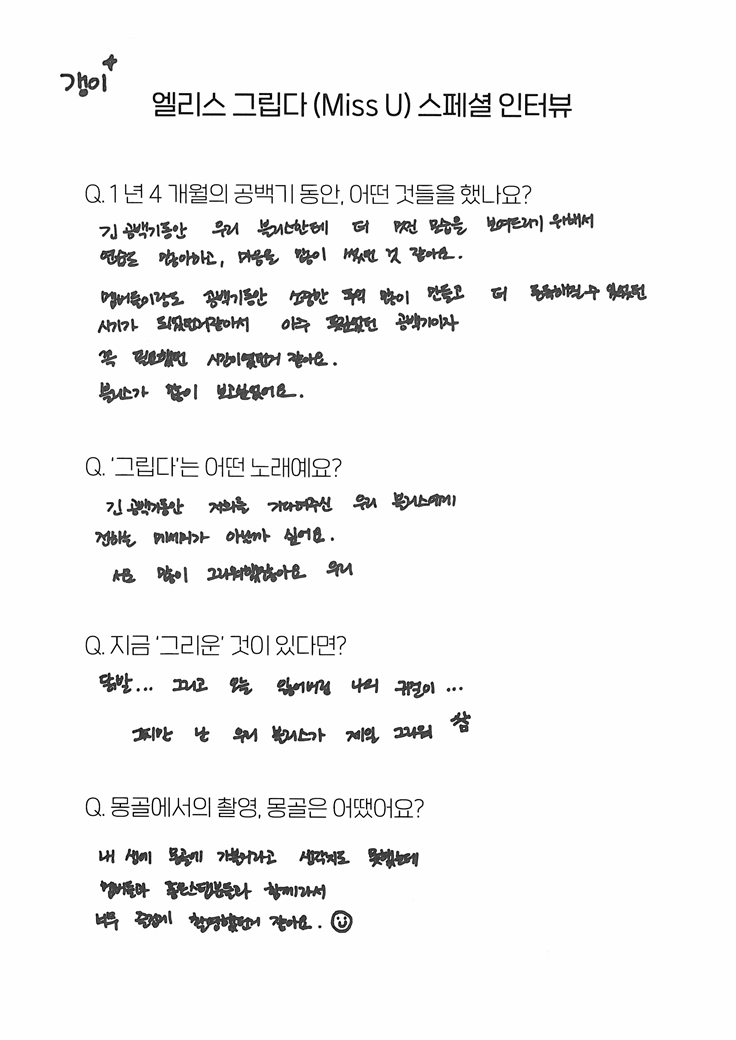 갱이
엘리스 그립다 (Miss U) 스페셜 인터뷰
Q. 1 년 4 개월의 공백기 동안, 어떤 것들을 했나요?
긴 공백기동안 우리 블리스한테 더 멋진 모습을 보여드리기 위해서
연습도 많이하고, 마음을 많이 썼던 것 같아요.
멤버들이랑도 공백기동안 소중한 추억 많이 만들고 더 돈독해질수 있었던
시기가 되었던거같아서 아주 뜻깊었던 공백기이자
꼭 필요했던 시간이였던거 같아요.
블리스가 많이 보고싶었어요.
Q. ‘그립다’는 어떤 노래예요?
긴 공백기동안 저희를 기다려주신 우리 블리스에게
전하는 메세지가 아닐까 싶어요.
서로 많이 그리워했잖아요 우리
Q. 지금 ‘그리운’ 것이 있다면?
닭발... 그리고 오늘 잃어버린 나의 귀걸이 ...
그치만 난 우리 블리스가 제일 그리워 참
Q. 몽골에서의 촬영, 몽골은 어땠어요?
내 생에 몽골에 가볼거라고 생각지도 못했는데
멤버들과 좋은스탭분들과 함께가서
너무 즐겁게 촬영했던거 같아요.